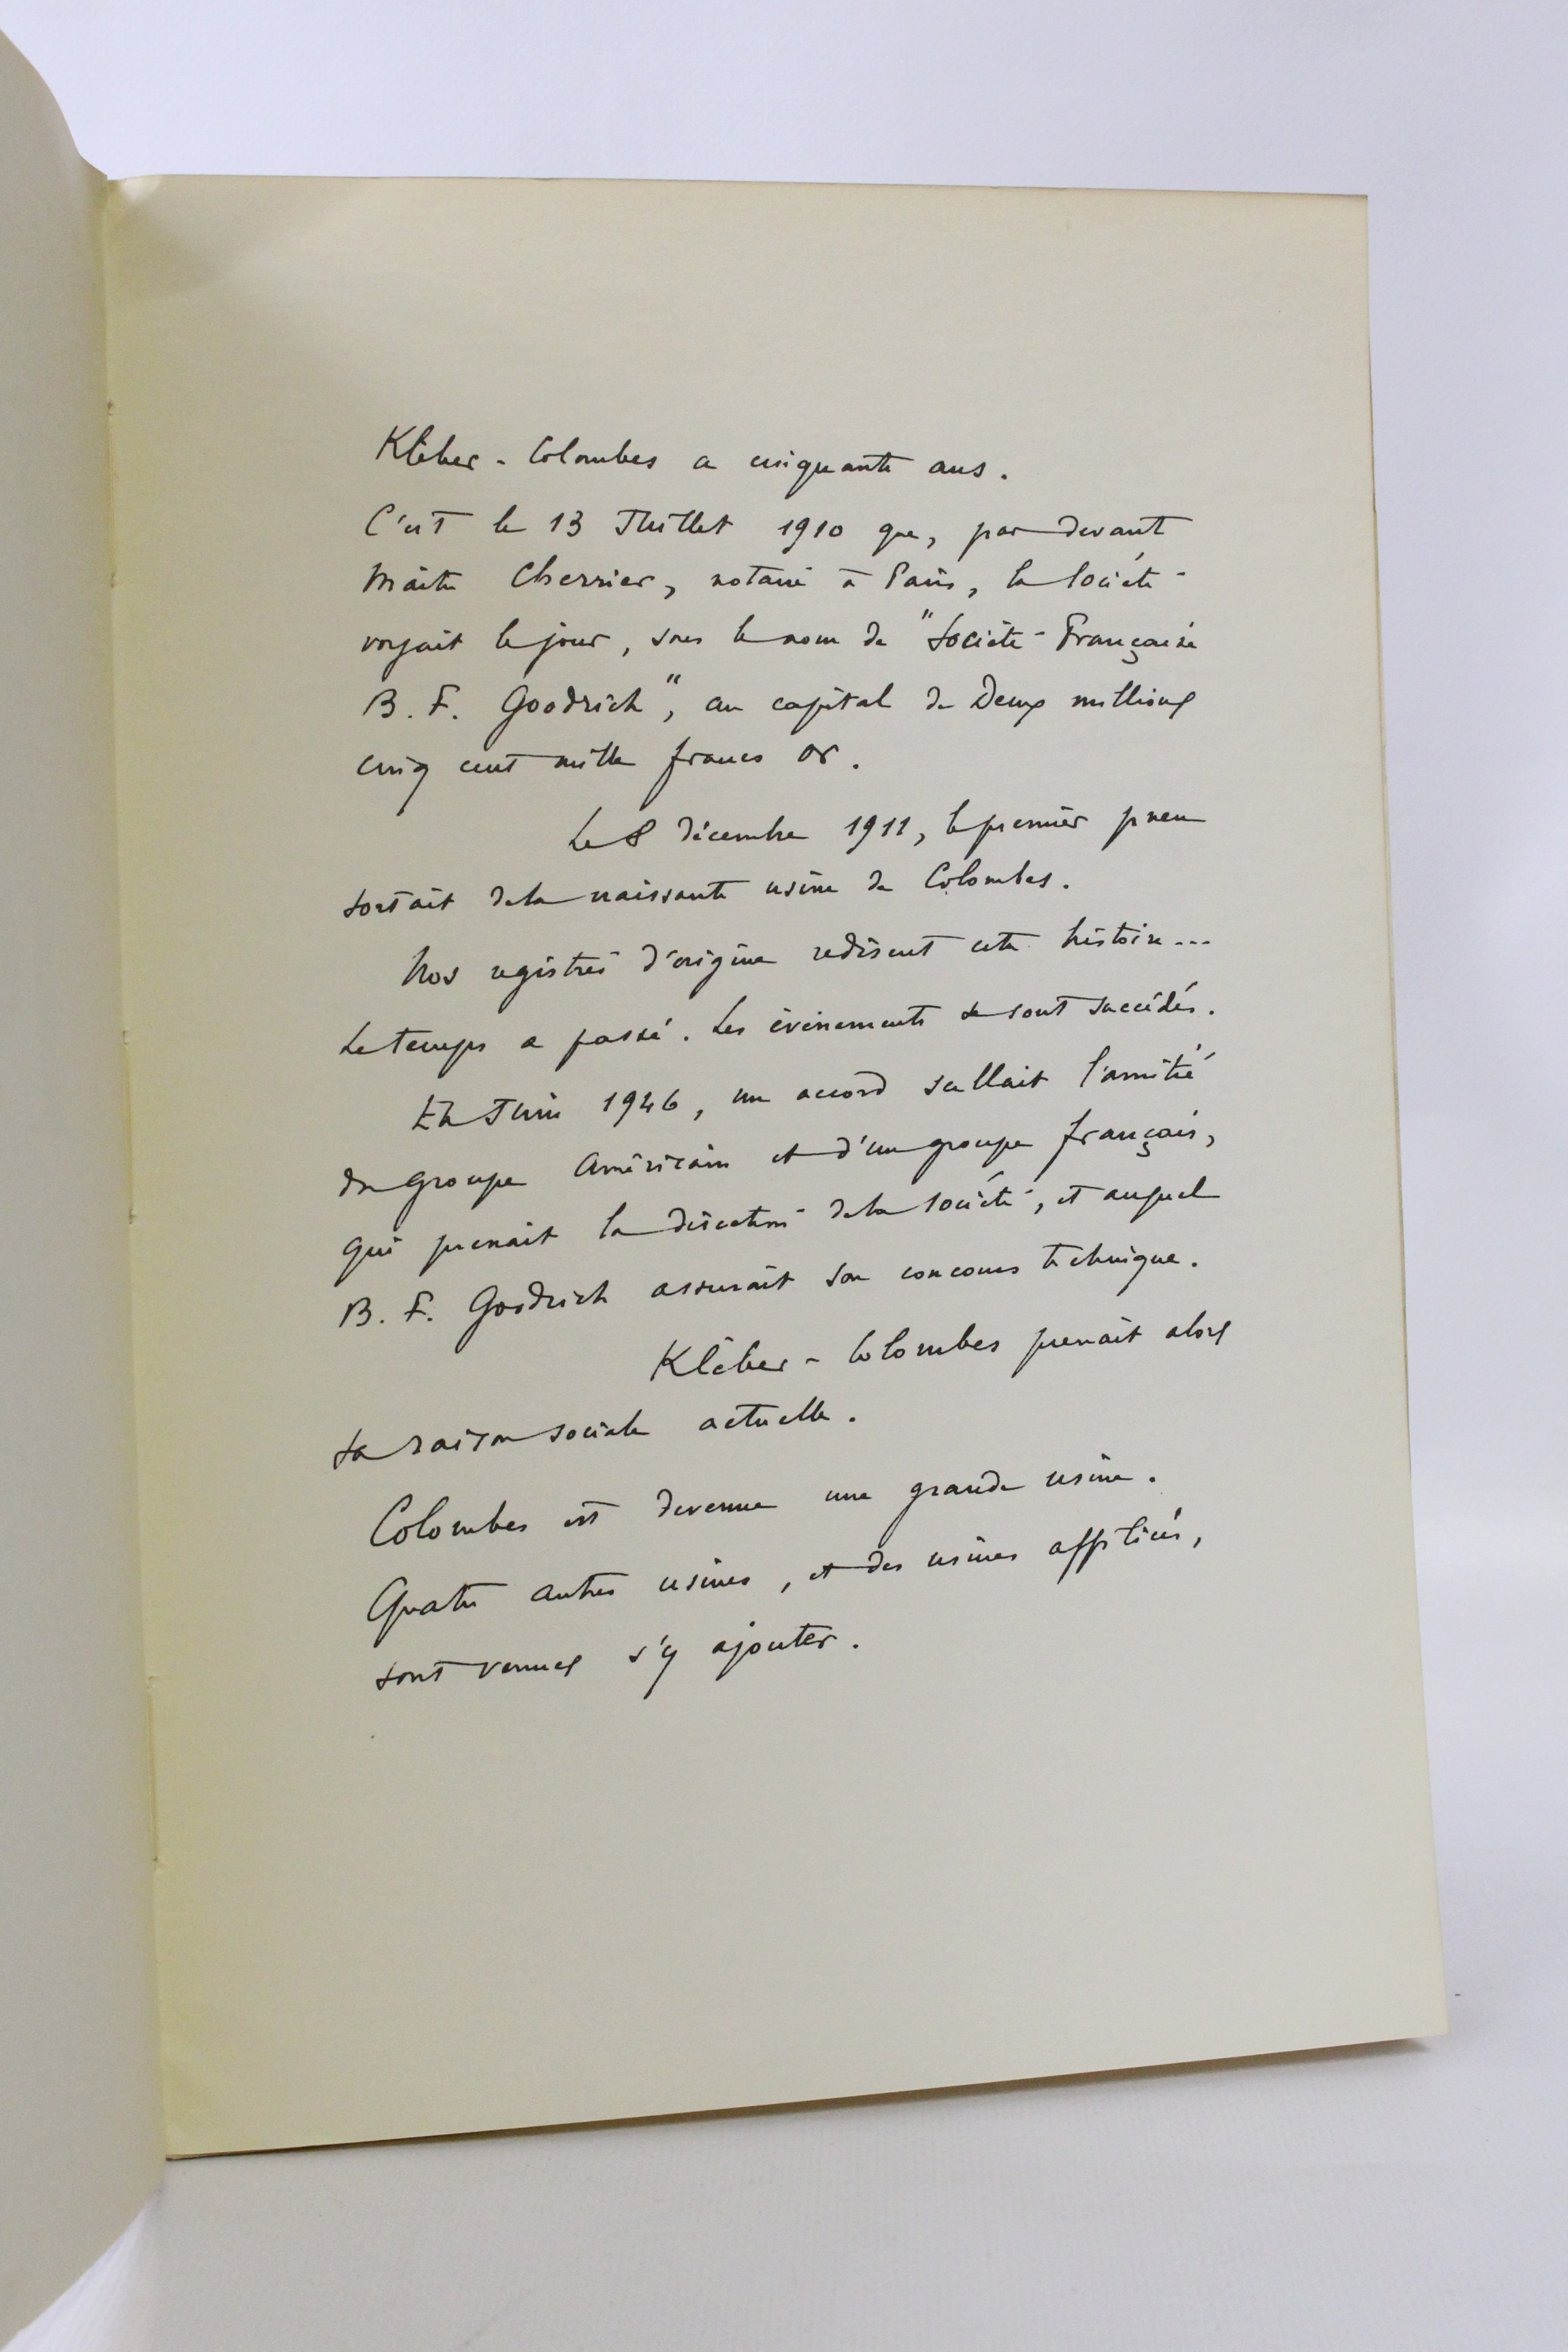 Kléber - Colombes a cinquante ans.
C'est le 13 Juillet 1910 que, par devant
Maître Cherrier, notaire à Paris, la Société
voyait le jour, sous le nom de "Société Française
B. F. Goodrich", au capital de Deux millions
cinq cent mille francs or.
Le 8 décembre 1911, le premier pneu
sortait de la naissante usine de Colombes.
Nos registres d'origine redisent cette histoire...
Le temps a passé. Les évènements se sont succédés.
En Juin 1946, un accord scellait l'amitié
du groupe Américain et d'un groupe français,
qui prenait la direction de la Société, et auquel
B. F. Goodrich assurait son concours technique.
Kléber - Colombes prenait alors
sa raison sociale actuelle.
Colombes est devenue une grande usine.
Quatre autres usines, et des usines affiliées,
sont venues s'y ajouter.